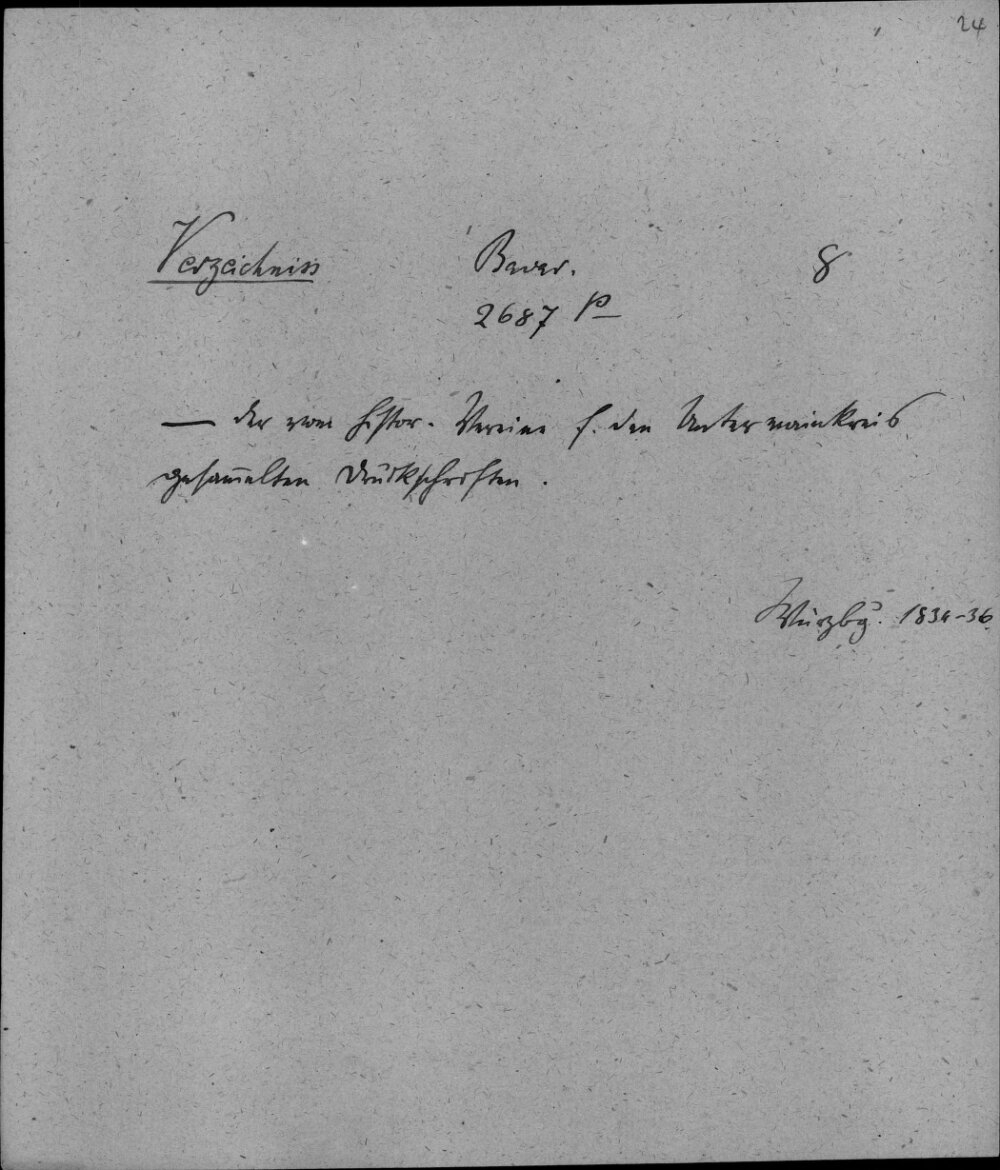 24
Verzeichniss Bavar. 8
2687 p
— der vom histor. Vereine f. den Untermainkreis
gesam̄elten Druckschriften.
Würzbg. 1834-36